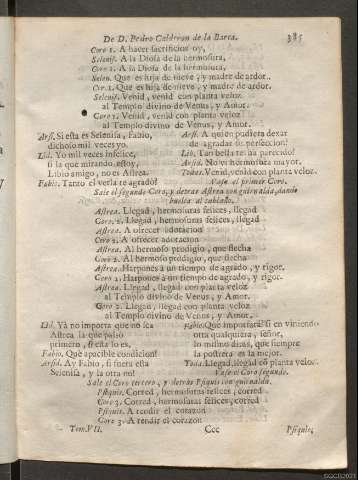 De D. Pedro Calderon de la Barca.
385
Coro 1. A hacer sacrificios oy,
Selenis. A la Diosa de la hermosura,
Coro 1. A la Diosa de la hermosura,
Selen. Que es hija de nieve, y madre de ardor.
Cor. 1. Que es hija de nieve, y madre de ardor.
Selenis. Venid, venid con planta veloz
al Templo divino de Venus, y Amor.
Coro 1. Venid, venid con planta veloz
al Templo divino de Venus, y Amor.
Ars. Si esta es Selenisa, Fabio,
dichoso mil veces yo.
Lid. Yo mil veces infelice,
si la que mirando estoy,
Libio amigo, no es Astrea.
Fabio. Tanto el verla te agradò?
Ars. A quien pudiera dexar
de agradar su perfeccion!
Lib. Tan bella te ha parecido?
Arsid. No vi hermosura mayor.
Todas. Venid, venid con planta veloz.
Vase el primer Coro.
Sale el segundo Coro, y detràs Astrea con guirnalda, dando
buelta al tablado.
Astrea. Llegad, hermosuras felices, llegad
Coro 2. Llegad, hermosuras felices, llegad
Astrea. A ofrecer adoracion
Coro 2. A ofrecer adoracion
Astrea. Al hermoso prodigio, que flecha
Coro 2. Al hermoso prodigio, que flecha
Astrea. Harpones à un tiempo de agrado, y rigor.
Coro 2. Harpones à un tiempo de agrado, y rigor.
Astrea. Llegad, llegad con planta veloz
al Templo divino de Venus, y Amor.
Coro 2. Llegad, llegad con planta veloz
al Templo divino de Venus, y Amor.
Lid. Yà no importa que no sea
Astrea la que passò
primero, si esta lo es.
Fabio. Què apacible condicion!
Arsid. Ay Fabio, si fuera esta
Selenisa, y la otra no!
Fabio. Que importarà? si en viniendo
otra qualquiera, señor,
lo mismo diràs, que siempre
la postrera es la mejor.
Toda. Llegad, llegad con planta veloz.
Vase el Coro segundo.
Sale el Coro tercero, y detràs Psiquis con guirnalda.
Psiquis. Corred, hermosuras felices, corred
Coro 3. Corred, hermosuras felices, corred
Psiquis. A rendir el corazon
Coro 3. A rendir el corazon
Tom. VII.
Ccc
Psiquis;